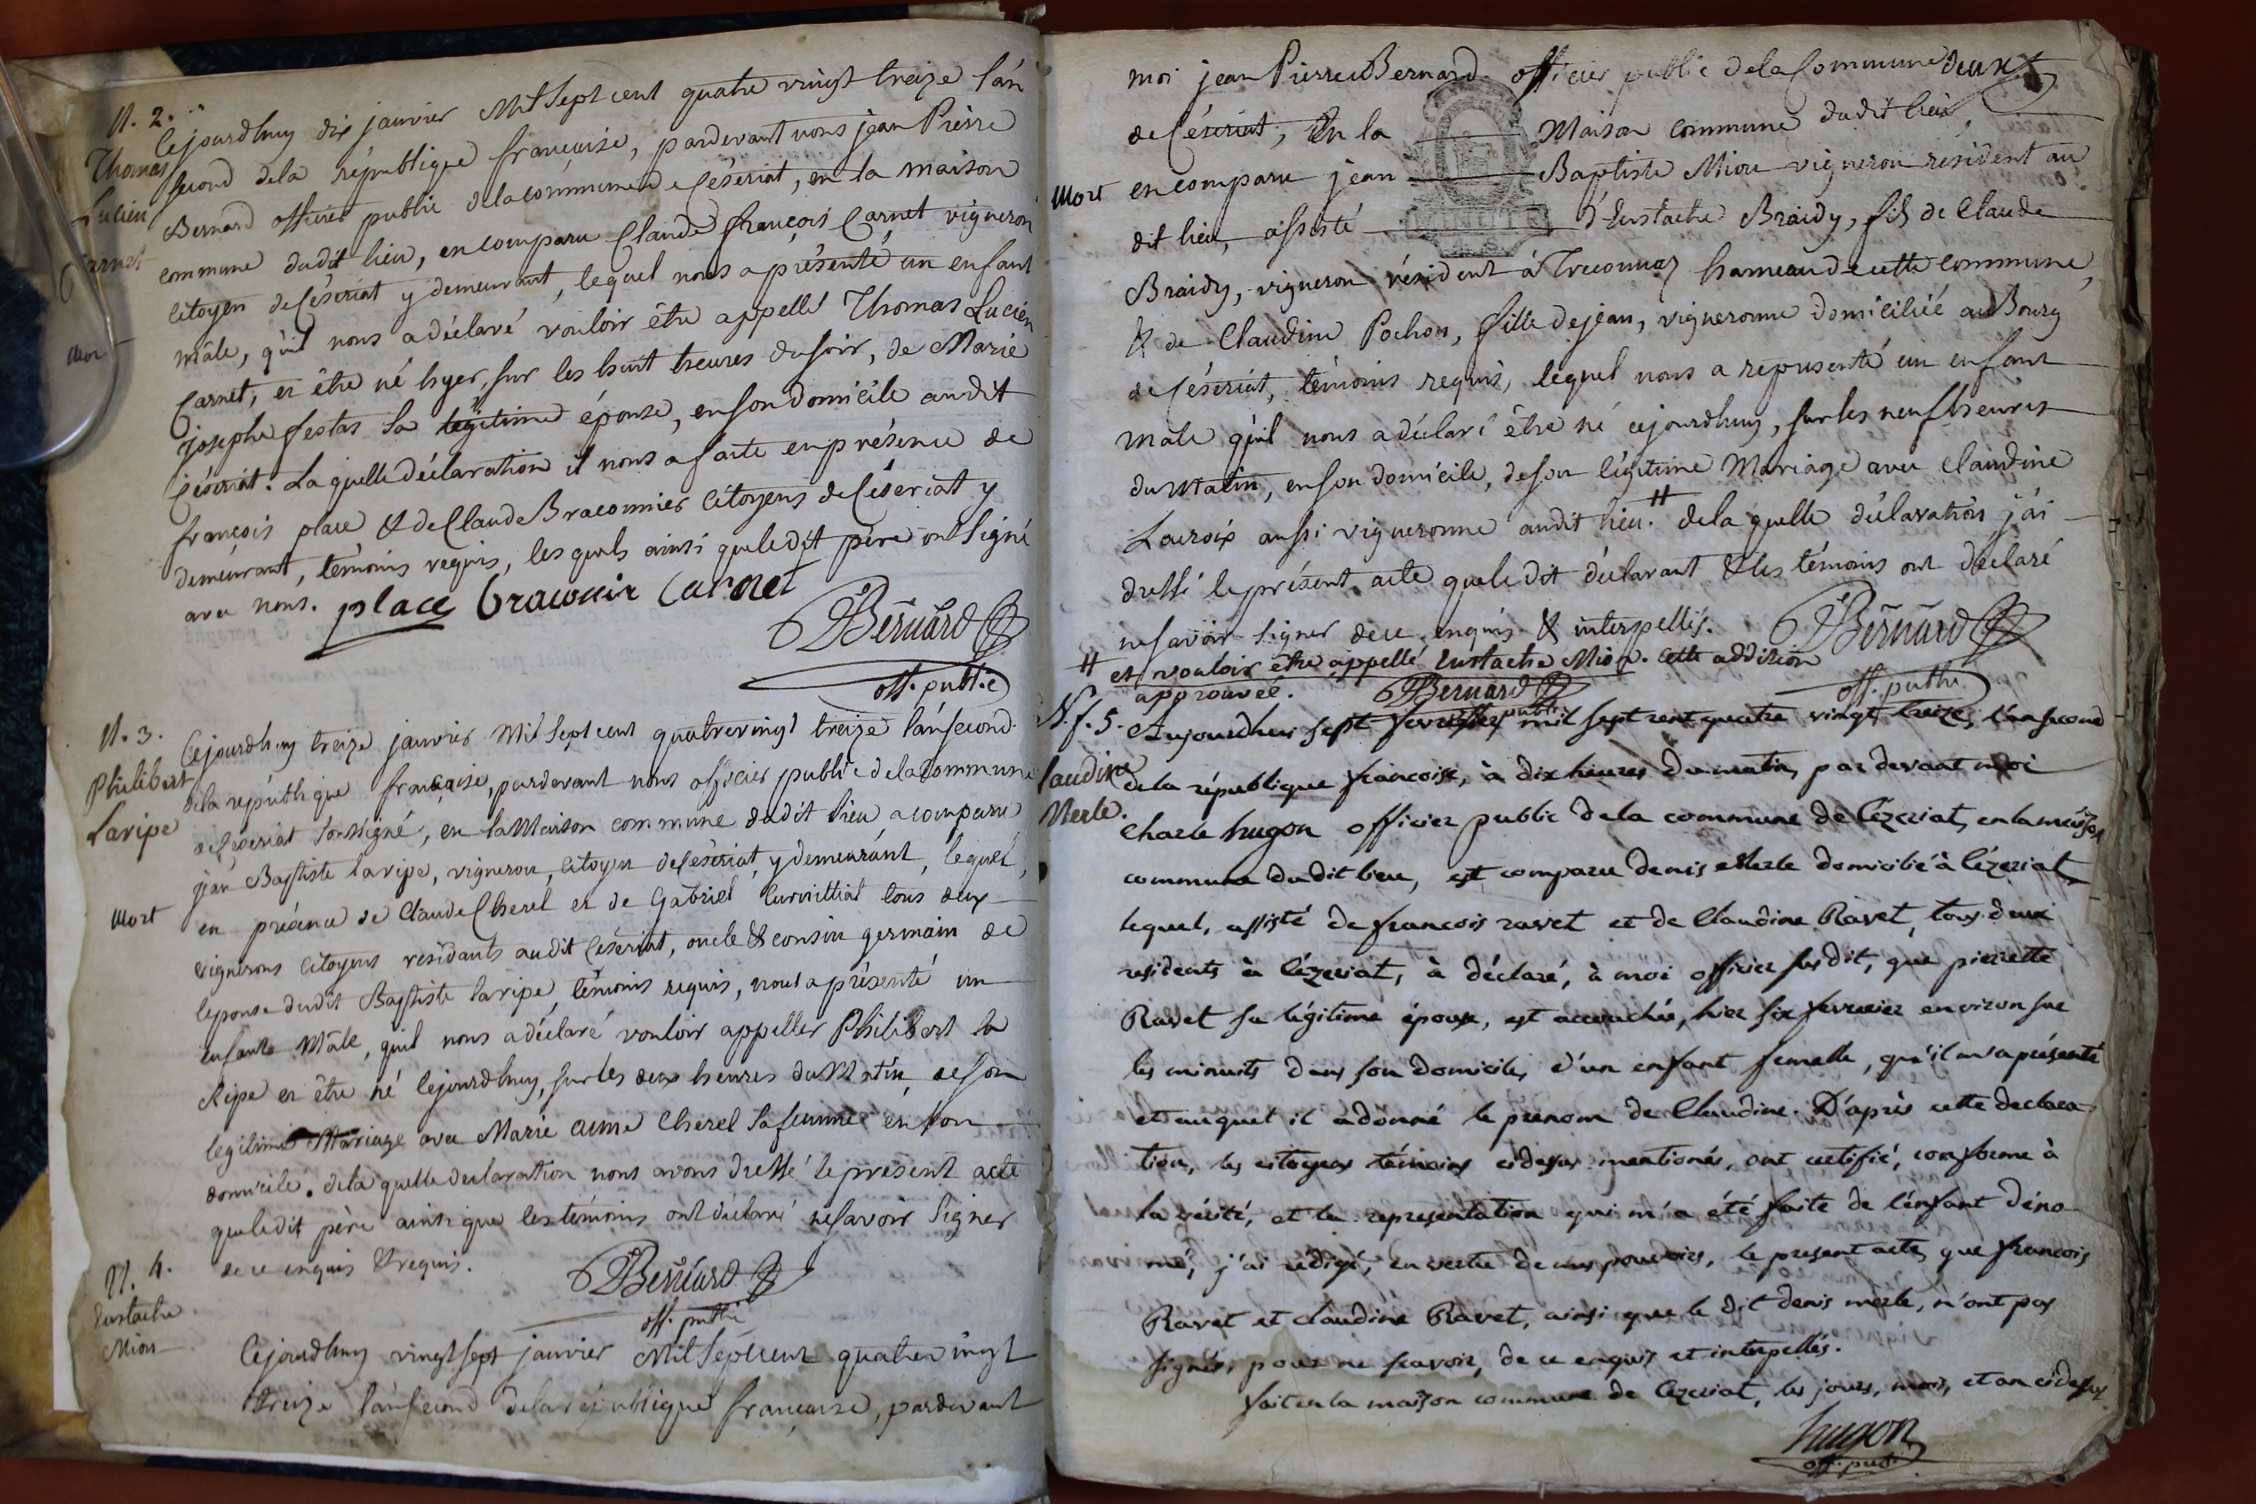 N. 2.
Thomas
Lucien
Carnet
mort
Cejourdhuy dix janvier Mil Sept cent quatre vingt treize l'an
second dela république française, pardevant nous jean Pierre
Bernard officier public dela commune de Céseriat, en la maison
commune dudit lieu, en comparu Claude françois Carnet vigneron
citoyen de Céseriat y demeurant, lequel nous a présenté un enfant
mâle, qu'il nous a déclaré vouloir être appellé Thomas Lucien
Carnet, et être né hyer, sur les huit heures du soir, de Marie
josephe festas sa légitime épouse, en son domicile audit
Céseriat. Laquelle déclaration il nous a faite en présence de
françois place & de Claude Braconnier citoyens de Céseriat y
demeurant, témoins requis, les quels ainsi queledit père ont Signé
avec nous. place Carnet
Bernard
off. public
N. 3.
Philibert
Laripe
mort
Cejourdhuy treize janvier Mil Sept cent quatrevingt treize l'an second
dela république française, pardevant nous officier public dela commune
de Céseriat soussigné, en la Maison commune dudit lieu, a comparu
jean Baptiste laripe, vigneron, citoyen de Céseriat, y demeurant, lequel,
en présence de Claude Cherel et de Gabriel Curvilliat tous deux
vignerons citoyens résidants audit Céseriat, oncle & cousin germain de
lepouse dudit Baptiste laripe, témoins requis, nous a présenté un
enfant Mâle, quil nous a déclaré vouloir appeller Philibert la
Ripe et être né cejourdhuy, sur les deux heures du Matin de son
legitime Mariage avec Marie aime Cherel sa femme en son
domicile. dela quelle declaration nous avons dressé le present acte
queledit père ainsi que les témoins ont déclaré ne savoir Signer
de ce enquis & requis.
Bernard
off. public
N. 4.
Eustache
Mion
Cejourdhuy vingt sept janvier Mil Sept cent quatre vingt
treize l'an second dela république française, pardevant
moi jean Pierre Bernard officier public dela Commune deux
de Céseriat, En la Maison commune dudit lieu,
mort
en comparu jean Baptiste Mion vigneron résident au
dit lieu, assisté d'Eustache Braidy, fils de Claude
Braidy, vigneron résident à Treconnaz hameau de cette commune,
& de Claudine Pochon, fille de jean, vigneronne domiciliée au Bourg
de Céseriat, témoins requis, lequel nous a representé un enfant
mâle qu'il nous a déclaré être né cejourdhuy, sur les neuf heures
du Matin, en son domicile, de son légitime Mariage avec Claudine
Lacroix aussi vigneronne audit lieu. # dela quelle déclaration j'ai
dressé le présent acte queledit déclarant & les témoins ont déclaré
ne savoir signer de ce enquis & interpellés.
Bernard
off. public
# et vouloir être appellé Eustache Mion. cette addition
approuvée. Bernard
off. public
N.f. 5.
Claudine
Merle.
Aujourdhui sept fevrier mil sept cent quatre vingt treize, l'an second
de la république françoise, à dix heures du matin, par devant moi
Charle hugon officier public de la commune de Cézeriat, en la maison
commune dudit lieu, est comparu denis merle domicilié à Cézeriat
lequel, assisté de françois ravet et de Claudine Ravet, tous deux
residents à Cézeriat, à déclaré, à moi officier susdit, que pierrette
Ravet sa légitime épouse, est accouchée, hier six fevrier environ sur
les minuits dans son domicile, d'un enfant femelle, qu'il m'a présenté
et auquel il a donné le prenom de Claudine. D'après cette declara-
tion, les citoyens témoins cidessus mentionés, ont certifié, conforme à
la vérité, et la representation qui m'a été faite de l'enfant déno-
mé, j'ai rédigé, en vertu de mes pouvoirs, le present acte, que françois
Ravet et claudine Ravet, ainsi que le dit denis merle, n'ont pas
signés, pour ne scavoir, de ce enquis et interpellés.
fait en la maison commune de Cézeriat, les jours, mois, et an cidessus.
hugon
off. pub.